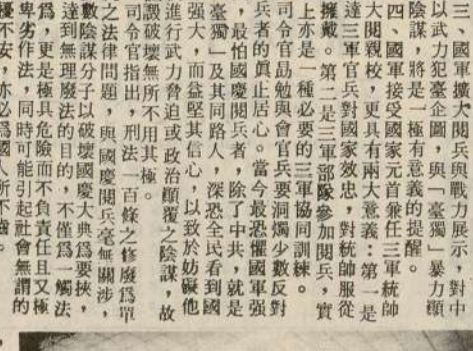 三、國軍擴大閱兵與戰力展示,對中
以武力犯臺企圖,與「臺獨」暴力顛
陰謀,將是一極有意義的提醒。
四、國軍接受國家元首兼任三軍統帥
大閱親校,更具有兩大意義:第一是
達三軍官兵對國家效忠,對統帥服從
擁戴。第二是三軍部隊參加閱兵,實
上亦是一種必要的三軍協同訓練。
司令官勗勉與會官兵要洞燭少數反對
兵者的眞正居心。當今最恐懼國軍强
,最怕國慶閱兵者,除了中共,就是
臺獨」及其同路人,深恐全民看到國
强大,而益堅其信心,以致於妨礙他
進行武力脅迫或政治顛覆之陰謀,故
謀破壞無所不用其極。
司令官指出,刑法一百條之修廢爲單
之法律問題,與國慶閱兵毫無關涉,
數陰謀分子以破壞國慶大典爲要挾,
達到無理廢法的目的,不僅爲一觸法
爲,更是極具危險而不負責任且又極
卑劣作法,同時可能引起社會無謂的
擾不安,亦必爲國人所不